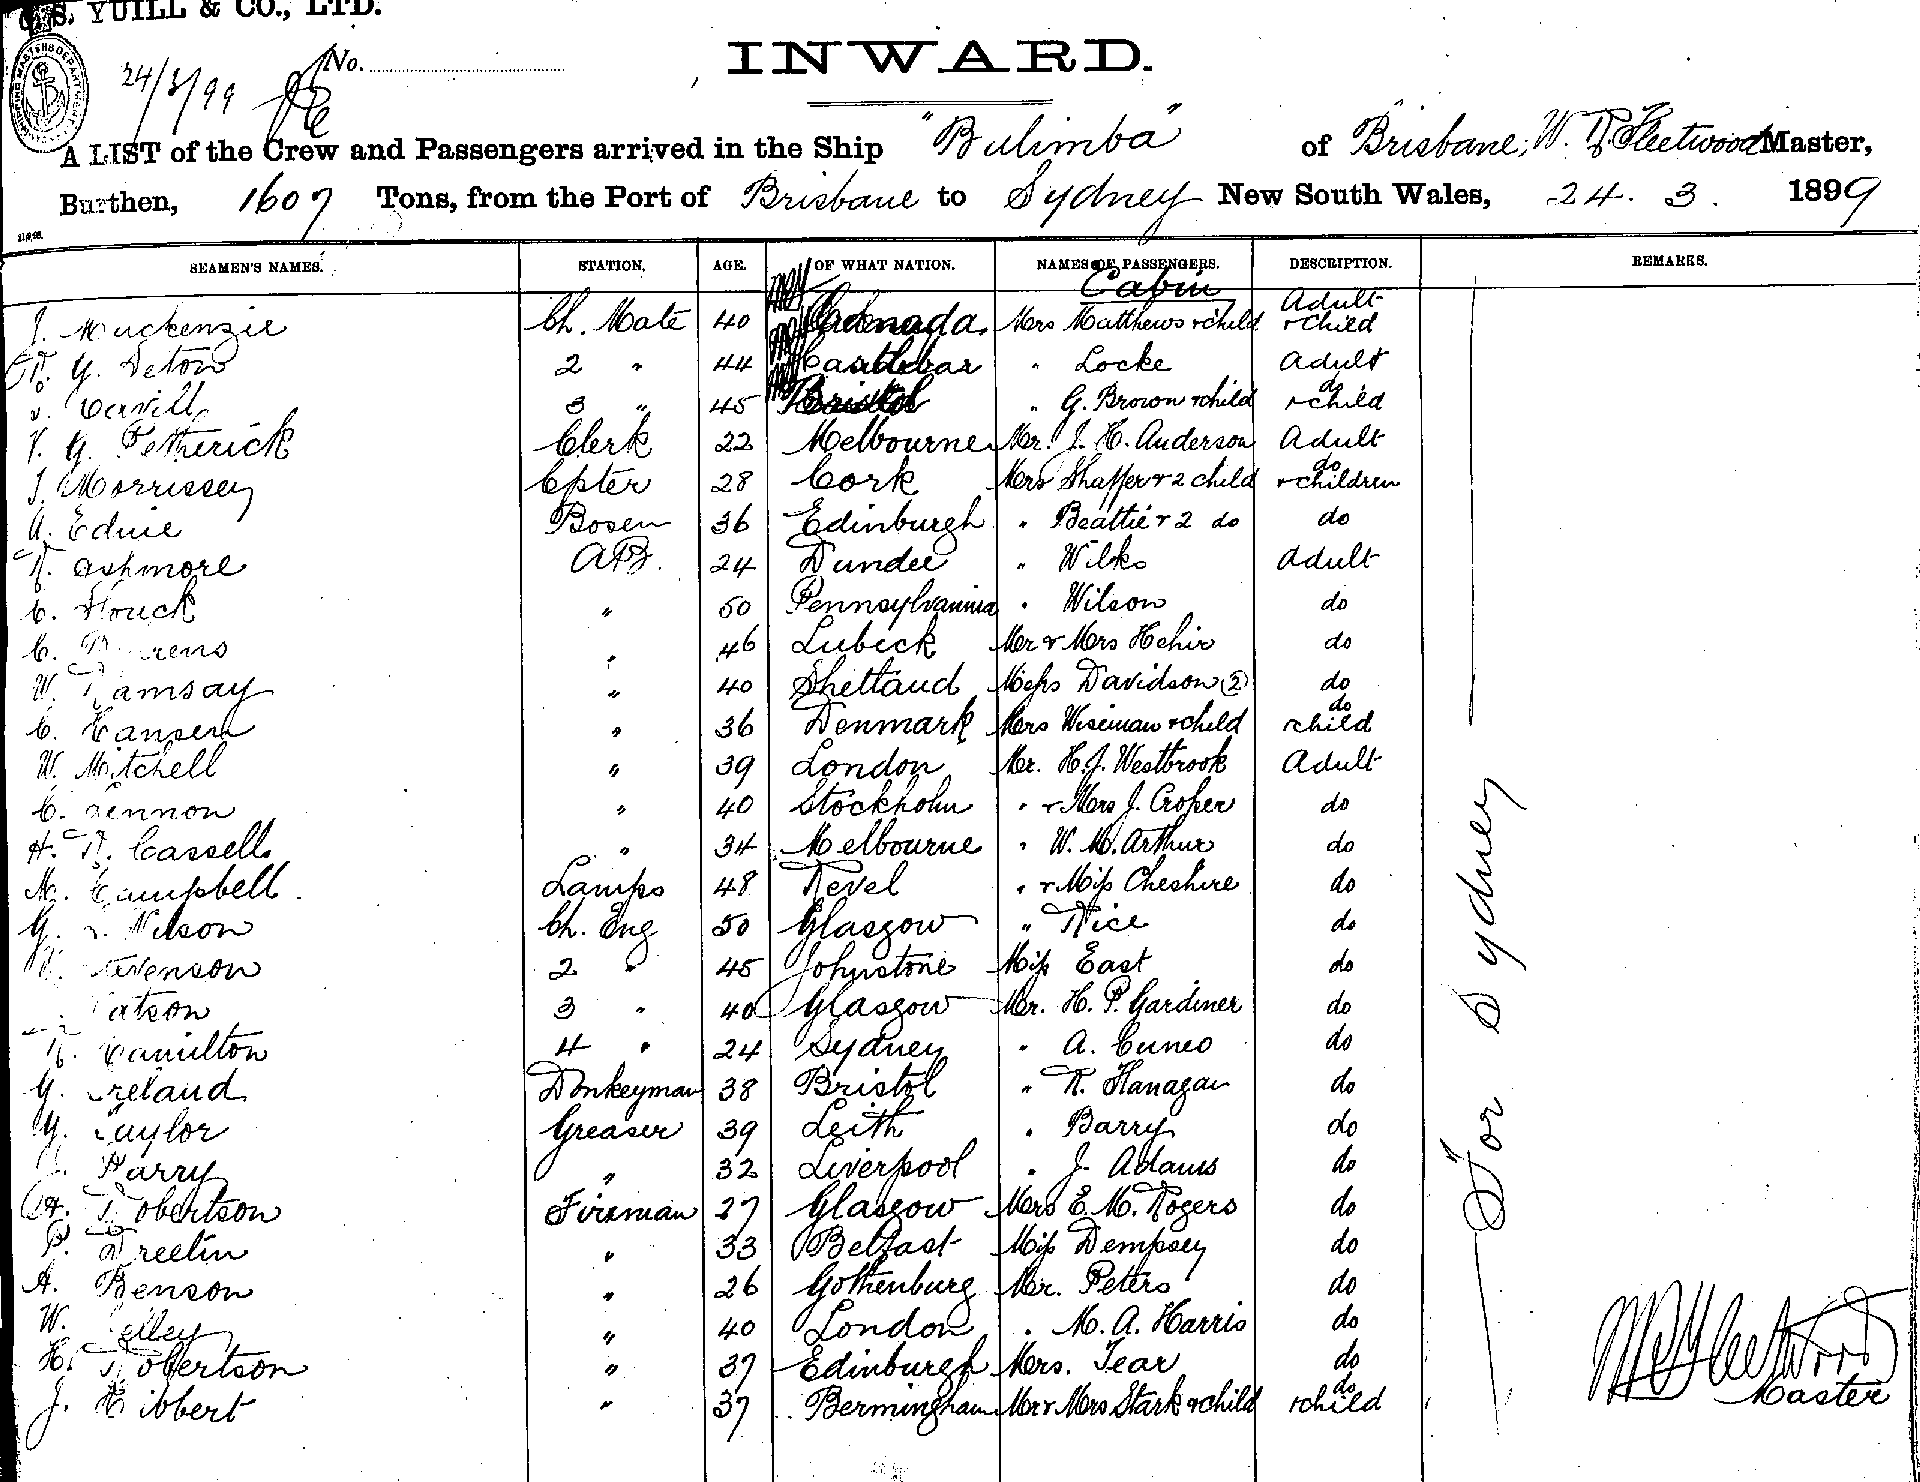 YUILL & CO., LTD.
No.
24/3/99
INWARD.
A LIST of the Crew and Passengers arrived in the Ship "Bulimba" of Brisbane, W. R Fleetwood Master,
Burthen, 1607 Tons, from the Port of Brisbane to Sydney New South Wales, 24. 3. 1899
SEAMEN'S NAMES. STATION. AGE. OF WHAT NATION. NAMES OF PASSENGERS. DESCRIPTION. REMARKS.
Cabin
J. Muckenzie Ch. Mate 40 Mrs Matthews & child Adult & child
44 Castlebar " Locke Adult
2 "
Cavill 3 " 45 Bristol " G. Brown & child do & child
G. Petherick Clerk 22 Melbourne Mr. J. H. Anderson Adult
J. Morrissey Cpter 28 Cork Mrs Shaffer & 2 child do & children
A. Ednie Bosen 36 Edinburgh " Beattie & 2 do do
R. Ashmore AB. 24 Dundee " Wilks Adult
C. " 50 Pennsylvannia " Wilson do
C. " 46 Lubeck Mr & Mrs Hehir do
W. Ramsay " 40 Shetland Misses Davidson (2) do
C. Hansen " 36 Denmark Mrs Wiseman & child do & child
W. Mitchell " 39 London Mr. H. J. Westbrook Adult
C. Lennon " 40 Stockholm " & Mrs J. Croper do
H. R. Cassells " 34 Melbourne " W. M. Arthur do
M. Campbell. Lamps 48 Revel " & Miss Cheshire do
G. Wilson Ch. Eng 50 Glasgow " Rice do
Stevenson 2 " 45 Johnstone Miss East do
atson 3 " 40 Glasgow Mr. H. P. Gardiner do
R. Hamilton 4 " 24 Sydney " A. Cuneo do
G. Ireland Donkeyman 38 Bristol " R. Flanagan do
G. Taylor Greaser 39 Leith " Barry do
J. Parry " 32 Liverpool " J. Adams do
A. Robertson Fireman 27 Glasgow Mrs E. M. Rogers do
P. Breelin " 33 Belfast Miss Dempsey do
A. Benson " 26 Gothenburg Mr. Peters do
W. elley " 40 London " M. A. Harris do
H. Robertson " 37 Edinburgh Mrs. Tear do
J. Hibbert " 37 Bermingham Mr & Mrs Stark & child do & child
For Sydney
W R Fleetwood
Master